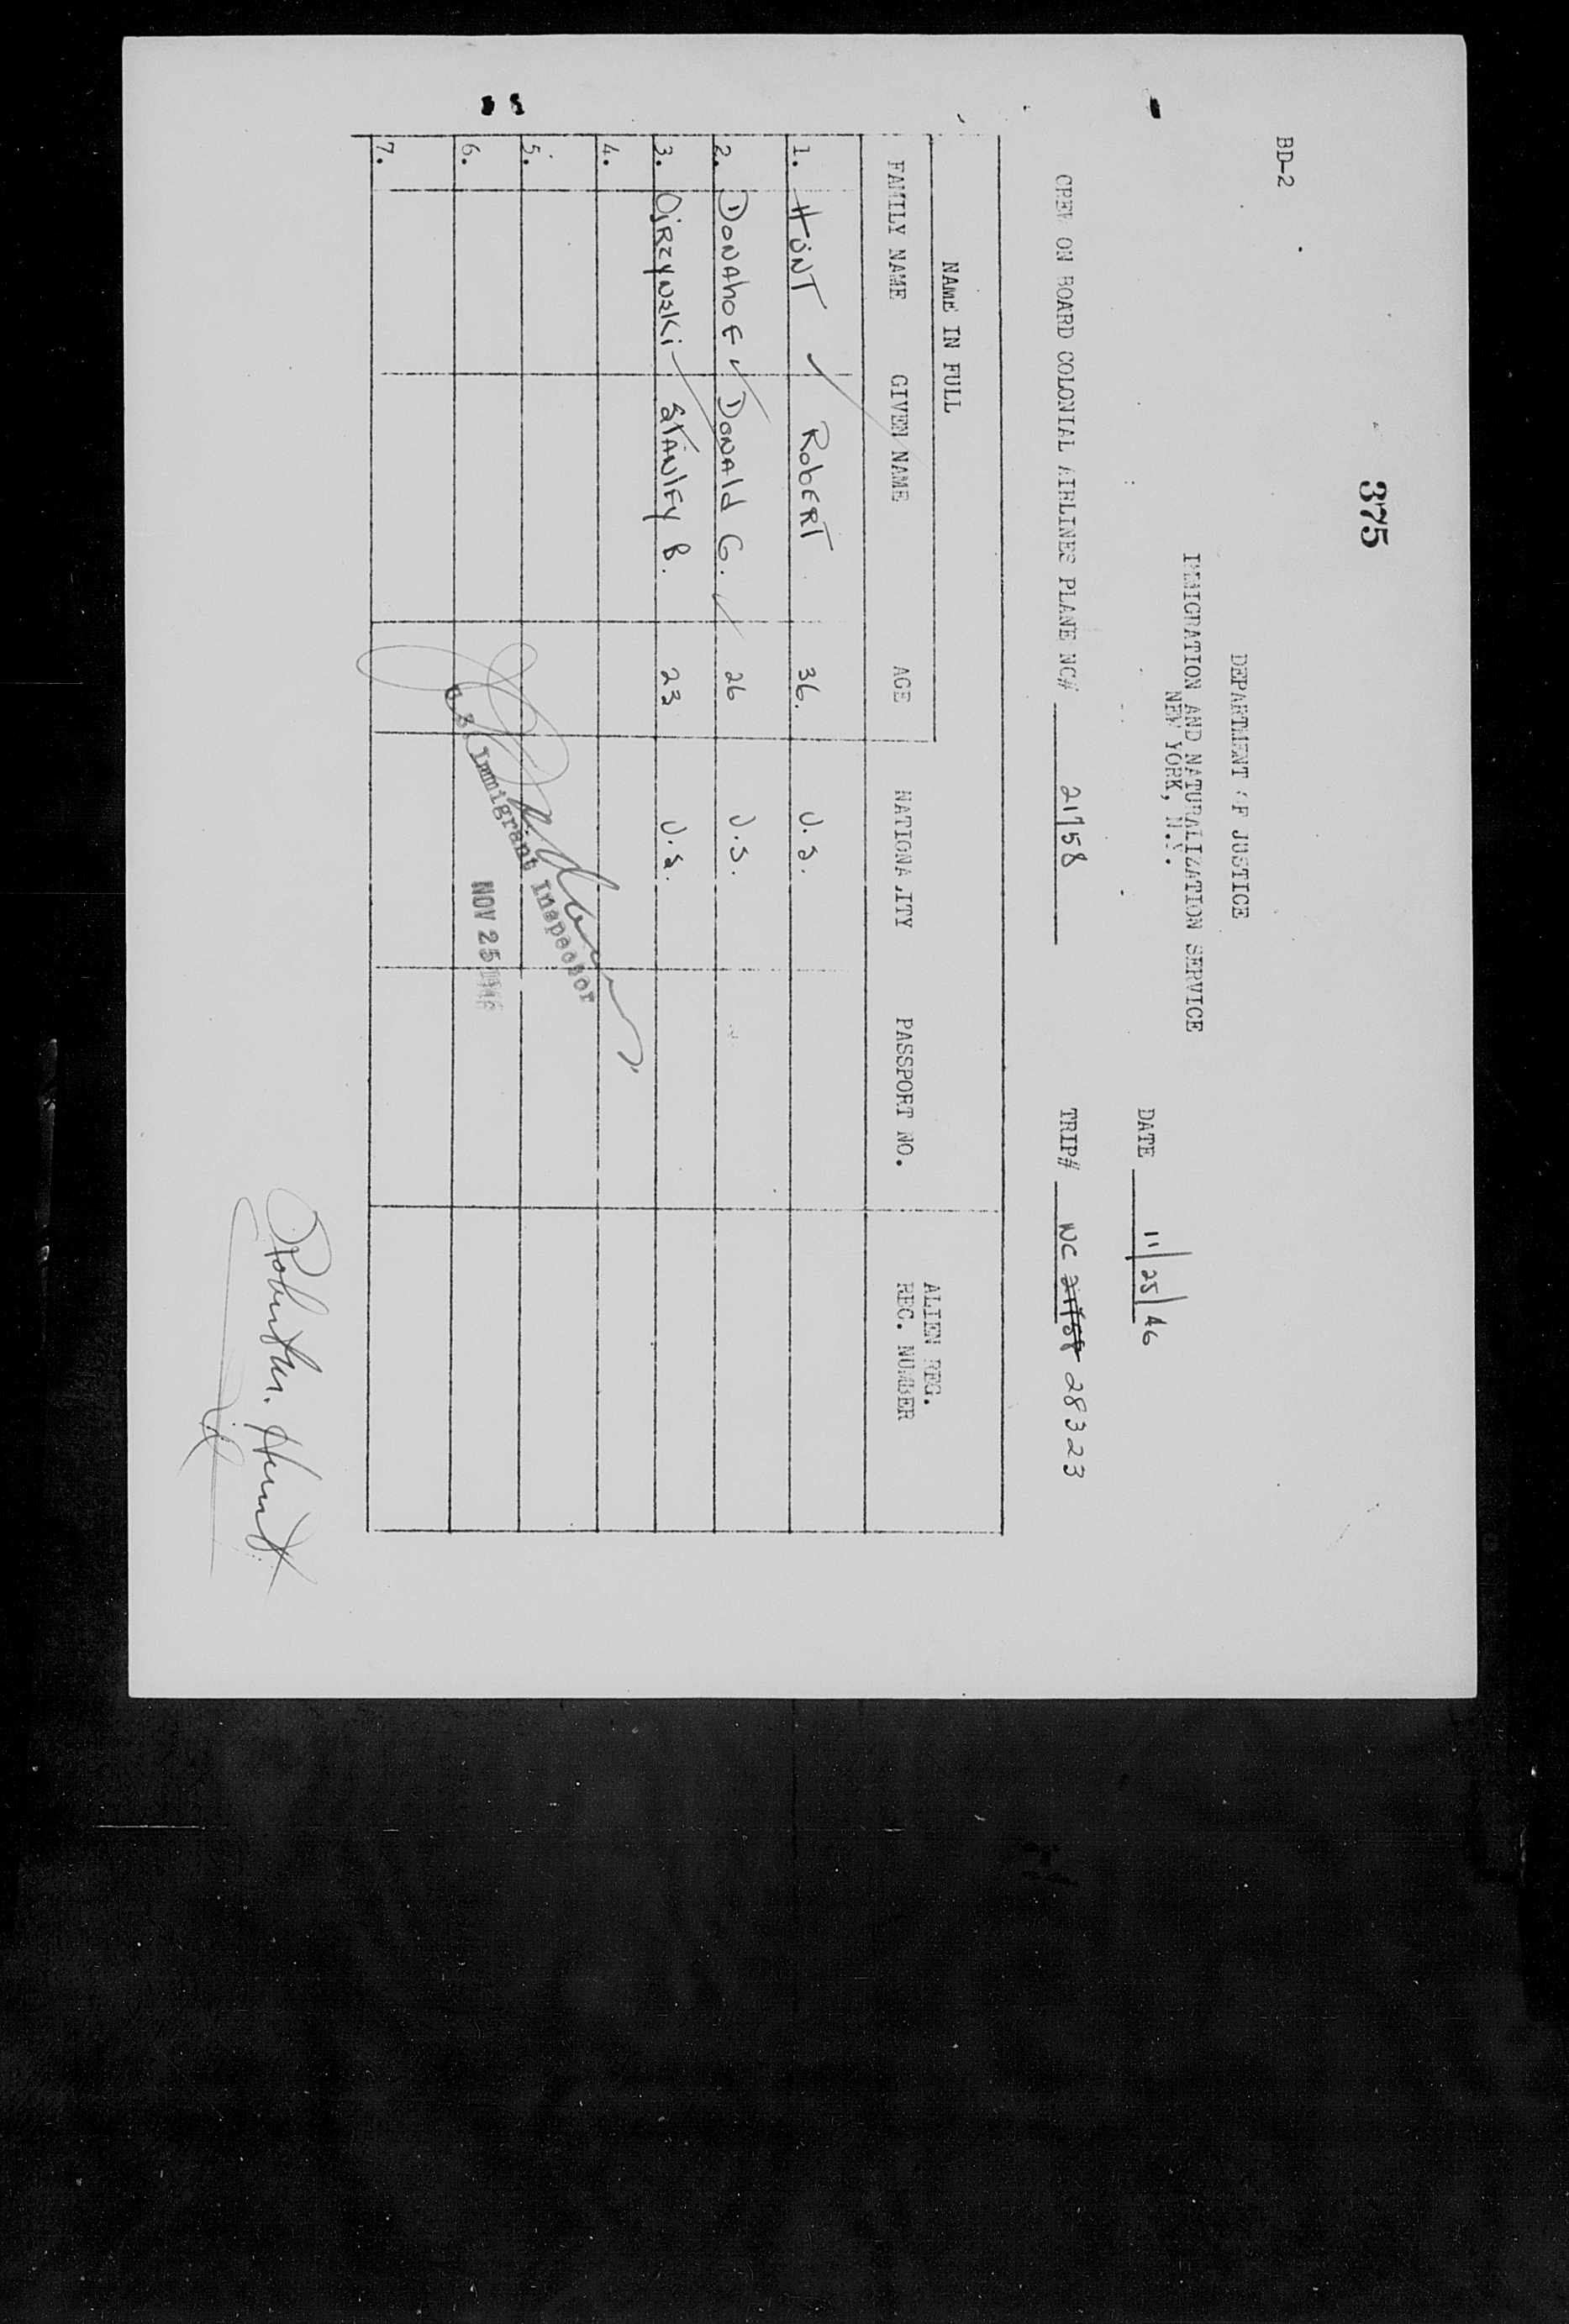 375
BD-2
DEPARTMENT OF JUSTICE
IMMIGRATION AND NATURALIZATION SERVICE
NEW YORK, N.Y.
DATE 11/25/46
CREW ON BOARD COLONIAL AIRLINES PLANE NC# 21758 TRIP# NC 21758 28323
NAME IN FULL
FAMILY NAME GIVEN NAME AGE NATIONALITY PASSPORT NO. ALIEN REG. REC. NUMBER
1. HUNT ROBERT 36. U.S.
2. DONAHOE DONALD G. 26 U.S.
3. OJRZYNSKI STANLEY B. 23 U.S.
4.
5.
6.
7.
U.S. Immigrant Inspector
NOV 25 1946
Robert M. Hunt